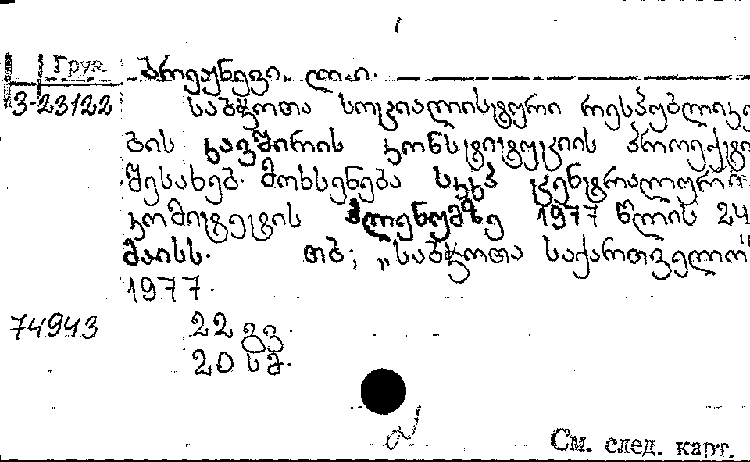 Груз.
ბრეჟნევი ლ. ი.
3-23122 საბჭოთა სოციალისტური რესპუბლიკე
ბის კავშირის კონსტიტუციის პროექტი
შესახებ. მოხსენება სკკპ ცენტრალური
კომიტეტის პლენუმზე 1977 წლის 24
მაისს. თბ; „საბჭოთა საქართველო"
1977.
74943 22 გვ.
20 სმ.
См. след. карт.